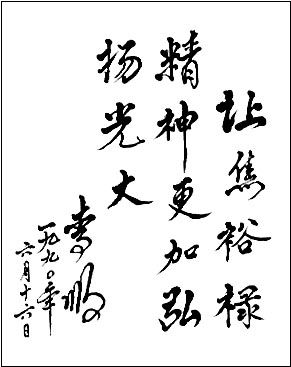 让焦裕禄
精神更加弘
扬光大
李鹏
一九九〇年
六月十六日